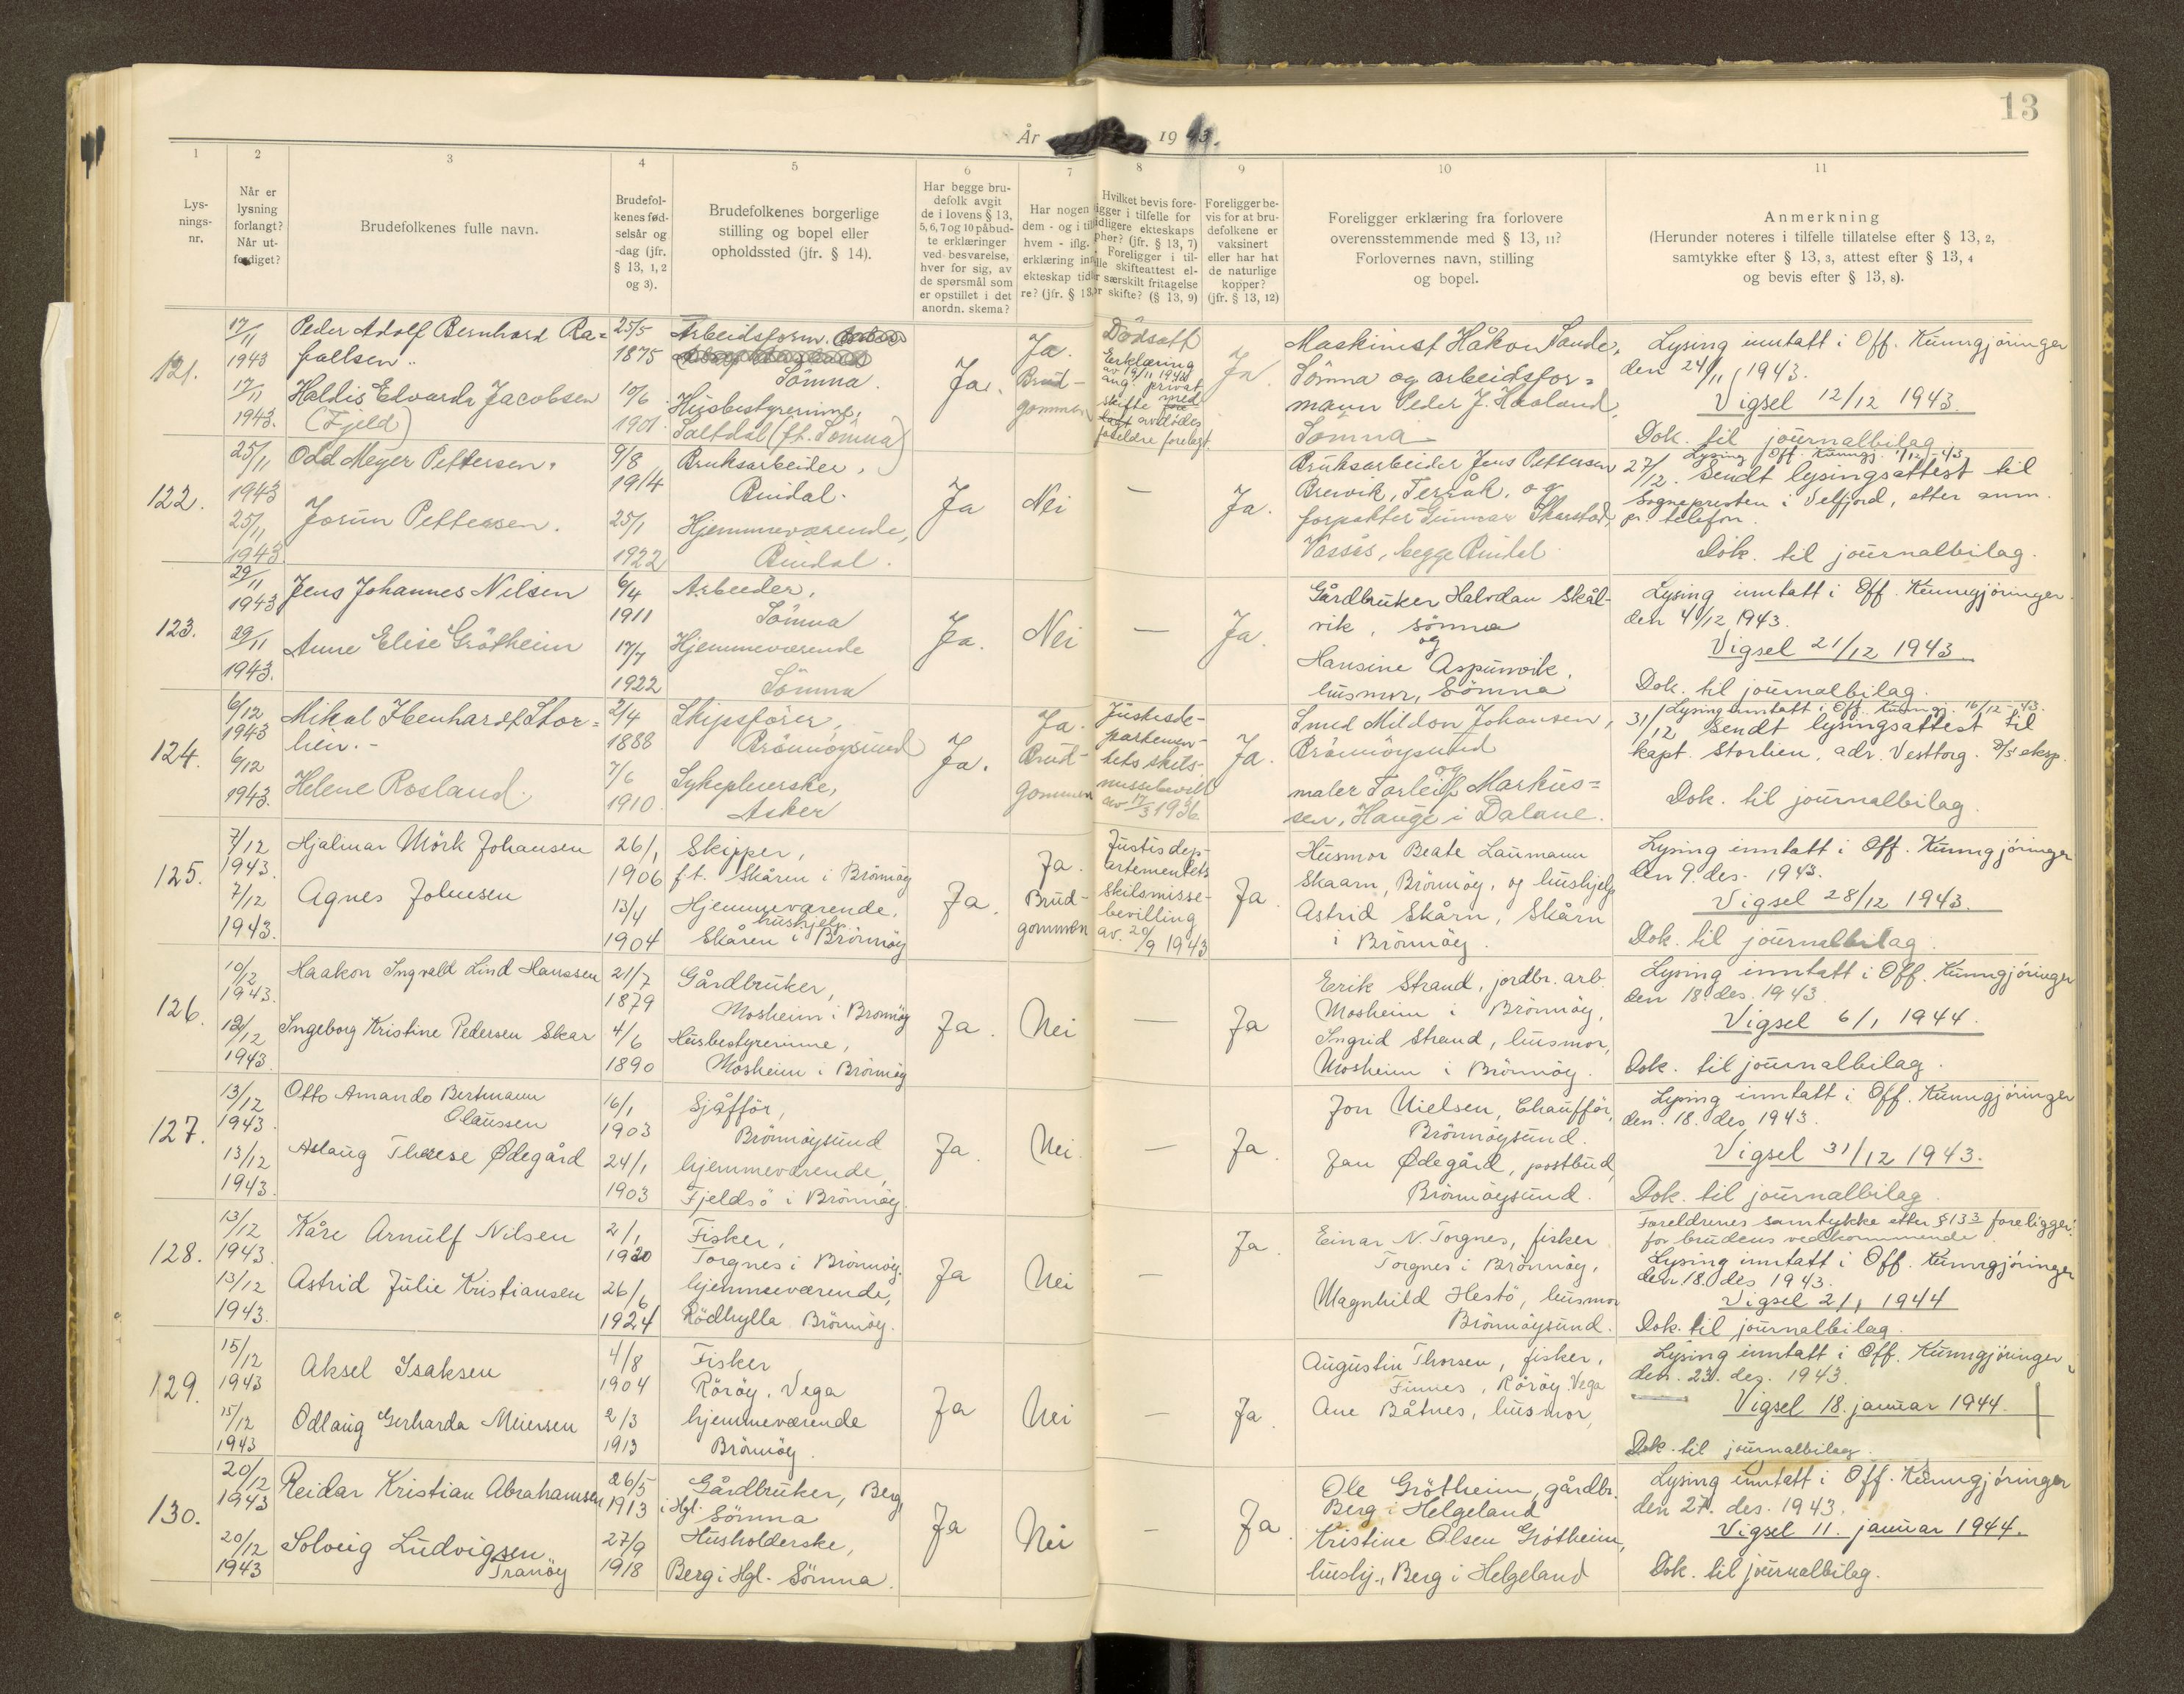 13
År 1943.
1 2 3 4 5 6 7 8 9 10 11
Lys-
nings-
nr.
Når er
lysning
forlangt?
Når ut-
ferdiget?
Brudefolkenes fulle navn.
Brudefol-
kenes fød-
selsår og
-dag (jfr.
§ 13, 1, 2
og 3).
Brudefolkenes borgerlige
stilling og bopel eller
opholdssted (jfr. § 14).
Har begge bru-
defolk avgit
de i lovens § 13,
5, 6, 7 og 10 påbud-
te erklæringer
ved besvarelse,
hver for sig, av
de spørsmål som
er opstillet i det
anordn. skema?
Har nogen
dem - og i til
hvem - iflg.
erklæring inn
ekteskap tid
re? (jfr. § 13,
Hvilket bevis fore-
ligger i tilfelle for
tidligere ekteskaps
ophør? (jfr. § 13, 7)
Foreligger i til-
felle skifteattest el-
ler særskilt fritagelse
for skifte? (§ 13, 9)
Foreligger be-
vis for at bru-
defolkene er
vaksinert
eller har hat
de naturlige
kopper?
(jfr. § 13, 12)
Foreligger erklæring fra forlovere
overensstemmende med § 13, 11?
Forlovernes navn, stilling
og bopel.
Anmerkning
(Herunder noteres i tilfelle tillatelse efter § 13, 2,
samtykke efter § 13, 3, attest efter § 13, 4
og bevis efter § 13, 8).
121.
17/11
1943
17/11
1943.
Peder Adolf Bernhard Ra=
faellsen.
Haldis Edvarda Jacobsen
(Fjeld)
25/5
1875
10/6
1901.
Arbeidsform.
Sömna.
Husbestyrerinne,
Saltdal (ft. Sömna)
Ja.
Ja.
Brud-
gommen
Dödsatt
Erklæring
av 19/11 1943
ang. privat
skifte med
avdödes
foreldre forelagt.
Ja.
Maskinist Håkon Sande,
Sömna og arbeidsfor=
mann Peder J. Haaland,
Sömna
Lysing inntatt i Off. Kunngjöringer
den 24/11 1943.
Vigsel 12/12 1943.
Dok. til journalbilag.
122.
25/11
1943
25/11
1943
Odd Meyer Pettersen.
Jorun Pettersen.
9/8
1914
25/1
1922
Bruksarbeider,
Bindal.
Hjemmeværende,
Bindal.
Ja
Nei
—
Ja.
Bruksarbeider Jens Pettersen
Brevik, Terråk, og
forpakter Gunnar Skarstad,
Vassås, begge Bindal
Lysing Off. Kunngj. 1/12-43
27/12. Sendt lysingsattest til
Sognepresten i Velfjord, etter anm.
pr. telefon.
Dok. til journalbilag.
123.
29/11
1943
29/11
1943.
Jens Johannes Nilsen
Anne Elise Grötheim
6/4
1911
17/7
1922
Arbeider,
Sömna
Hjemmeværende
Sömna
Ja.
Nei
—
Ja.
Gårdbruker Halvdan Skål-
vik, Sömna
og
Hansine Aspunvik,
husmor, Sömna
Lysing inntatt i Off. Kunngjöringer
den 4/12 1943.
Vigsel 21/12 1943
Dok. til journalbilag.
124.
6/12
1943
6/12
1943.
Mikal Ibenhardt Stor=
lien.-
Helene Rosland.
2/4
1888
7/6
1910.
Skipsförer,
Brönnöysund
Sykepleierske,
Asker
Ja.
Ja.
Brud-
gommen
Justisde-
partemen-
tets skils-
missebevill
av 17/3 1936
Ja.
Smed Mildon Johansen,
Brönnöysund
og
maler Torleif Markus=
sen, Hauge i Dalane.
Lysing inntatt i Off. Kunngj. 16/12-43.
31/12 Sendt lysingsattest til
kapt. Storlien, adr. Vesttorg. D/S eksp.
Dok. til journalbilag.
125.
7/12
1943.
7/12
1943.
Hjalmar Mörk Johansen
Agnes Johnsen
26/1
1906
13/4
1904
Skipper,
ft. Skåren i Brönnöy
Hjemmeværende,
hushjelp
Skåren i Brönnöy
Ja.
Ja.
Brud-
gommen
Justisdep-
artementets
Skilsmisse-
bevilling
av. 20/9 1943
Ja.
Husmor Beate Laumann
Skaarn, Brönnöy, og hushjelp
Astrid Skårn, Skårn
i Brönnöy.
Lysing inntatt i Off. Kunngjöringer
den 9. des. 1943.
Vigsel 28/12 1943.
Dok. til journalbilag.
126.
10/12
1943.
12/12
1943.
Haakon Ingvald Lind Hanssen
Ingeborg Kristine Pedersen Skar
21/7
1879
4/6
1890
Gårdbruker,
Mosheim i Brönnöy
Husbestyrerinne,
Mosheim i Brönnöy
Ja.
Nei
—
Ja
Erik Strand, jordbr. arb.
Mosheim i Brönnöy,
Ingrid Strand, husmor,
Mosheim i Brönnöy.
Lysing inntatt i Off. Kunngjöringer
den 18. des. 1943.
Vigsel 6/1 1944.
Dok. til journalbilag.
127.
13/12
1943.
13/12
1943.
Otto Amando Bertmann
Olaussen
Aslaug Therese Ødegård
16/1
1903
24/1
1903
Sjåfför,
Brönnöysund
hjemmeværende,
Fjeldsö i Brönnöy.
Ja.
Nei.
—
Ja.
Jon Nielsen, Chaufför,
Brönnöysund.
Jan Ødegård, postbud,
Brönnöysund.
Lysing inntatt i Off. Kunngjöringer
den. 18. des. 1943.
Vigsel 31/12 1943.
Dok. til journalbilag.
128.
13/12
1943.
13/12
1943.
Kåre Arnulf Nilsen
Astrid Julie Kristiansen
2/1
1920
26/6
1924
Fisker,
Torgnes i Brönnöy.
hjemmeværende,
Rödhylla Brönnöy.
Ja
Nei
—
Ja.
Einar N. Torgnes, fisker
Torgnes i Brönnöy,
Magnhild Hestö, husmor
Brönnöysund.
Foreldrenes samtykke etter § 13 3 foreligger
for brudens vedkommende
Lysing inntatt i Off. Kunngjöringer
den. 18. des 1943.
Vigsel 2/1 1944
Dok. til journalbilag.
129.
15/12
1943
15/12
1943
Aksel Isaksen
Odlaug Gerharda Meiersen
4/8
1904
2/3
1913
Fisker
Röröy, Vega
hjemmeværende
Brönnöy.
Ja
Nei
—
Ja.
Augustin Thorsen, fisker,
Finnes, Röröy. Vega
Ane Båtnes, husmor,
Lysing inntatt i Off. Kunngjöringer
den. 23. des. 1943.
Vigsel 18. januar 1944.
Dok. til journalbilag.
130.
20/12
1943
20/12
1943
Reidar Kristian Abrahamsen
Solveig Ludvigsen
Tranöy
26/5
1913
27/9
1918
Gårdbruker, Berg
i Hgl. Sömna
Husholderske,
Berg i Hgl. Sömna.
Ja
Nei
—
Ja.
Ole Grötheim, gårdbr.
Berg i Helgeland
Kristine Olsen Grötheim,
hushj., Berg i Helgeland
Lysing inntatt i Off. Kunngjöringer
den 27. des. 1943.
Vigsel 11. januar 1944.
Dok. til journalbilag.